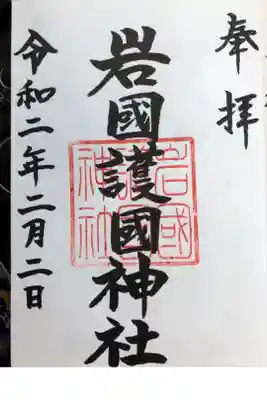 奉拝
岩國護國神社
岩國護國神社
令和二年二月二日